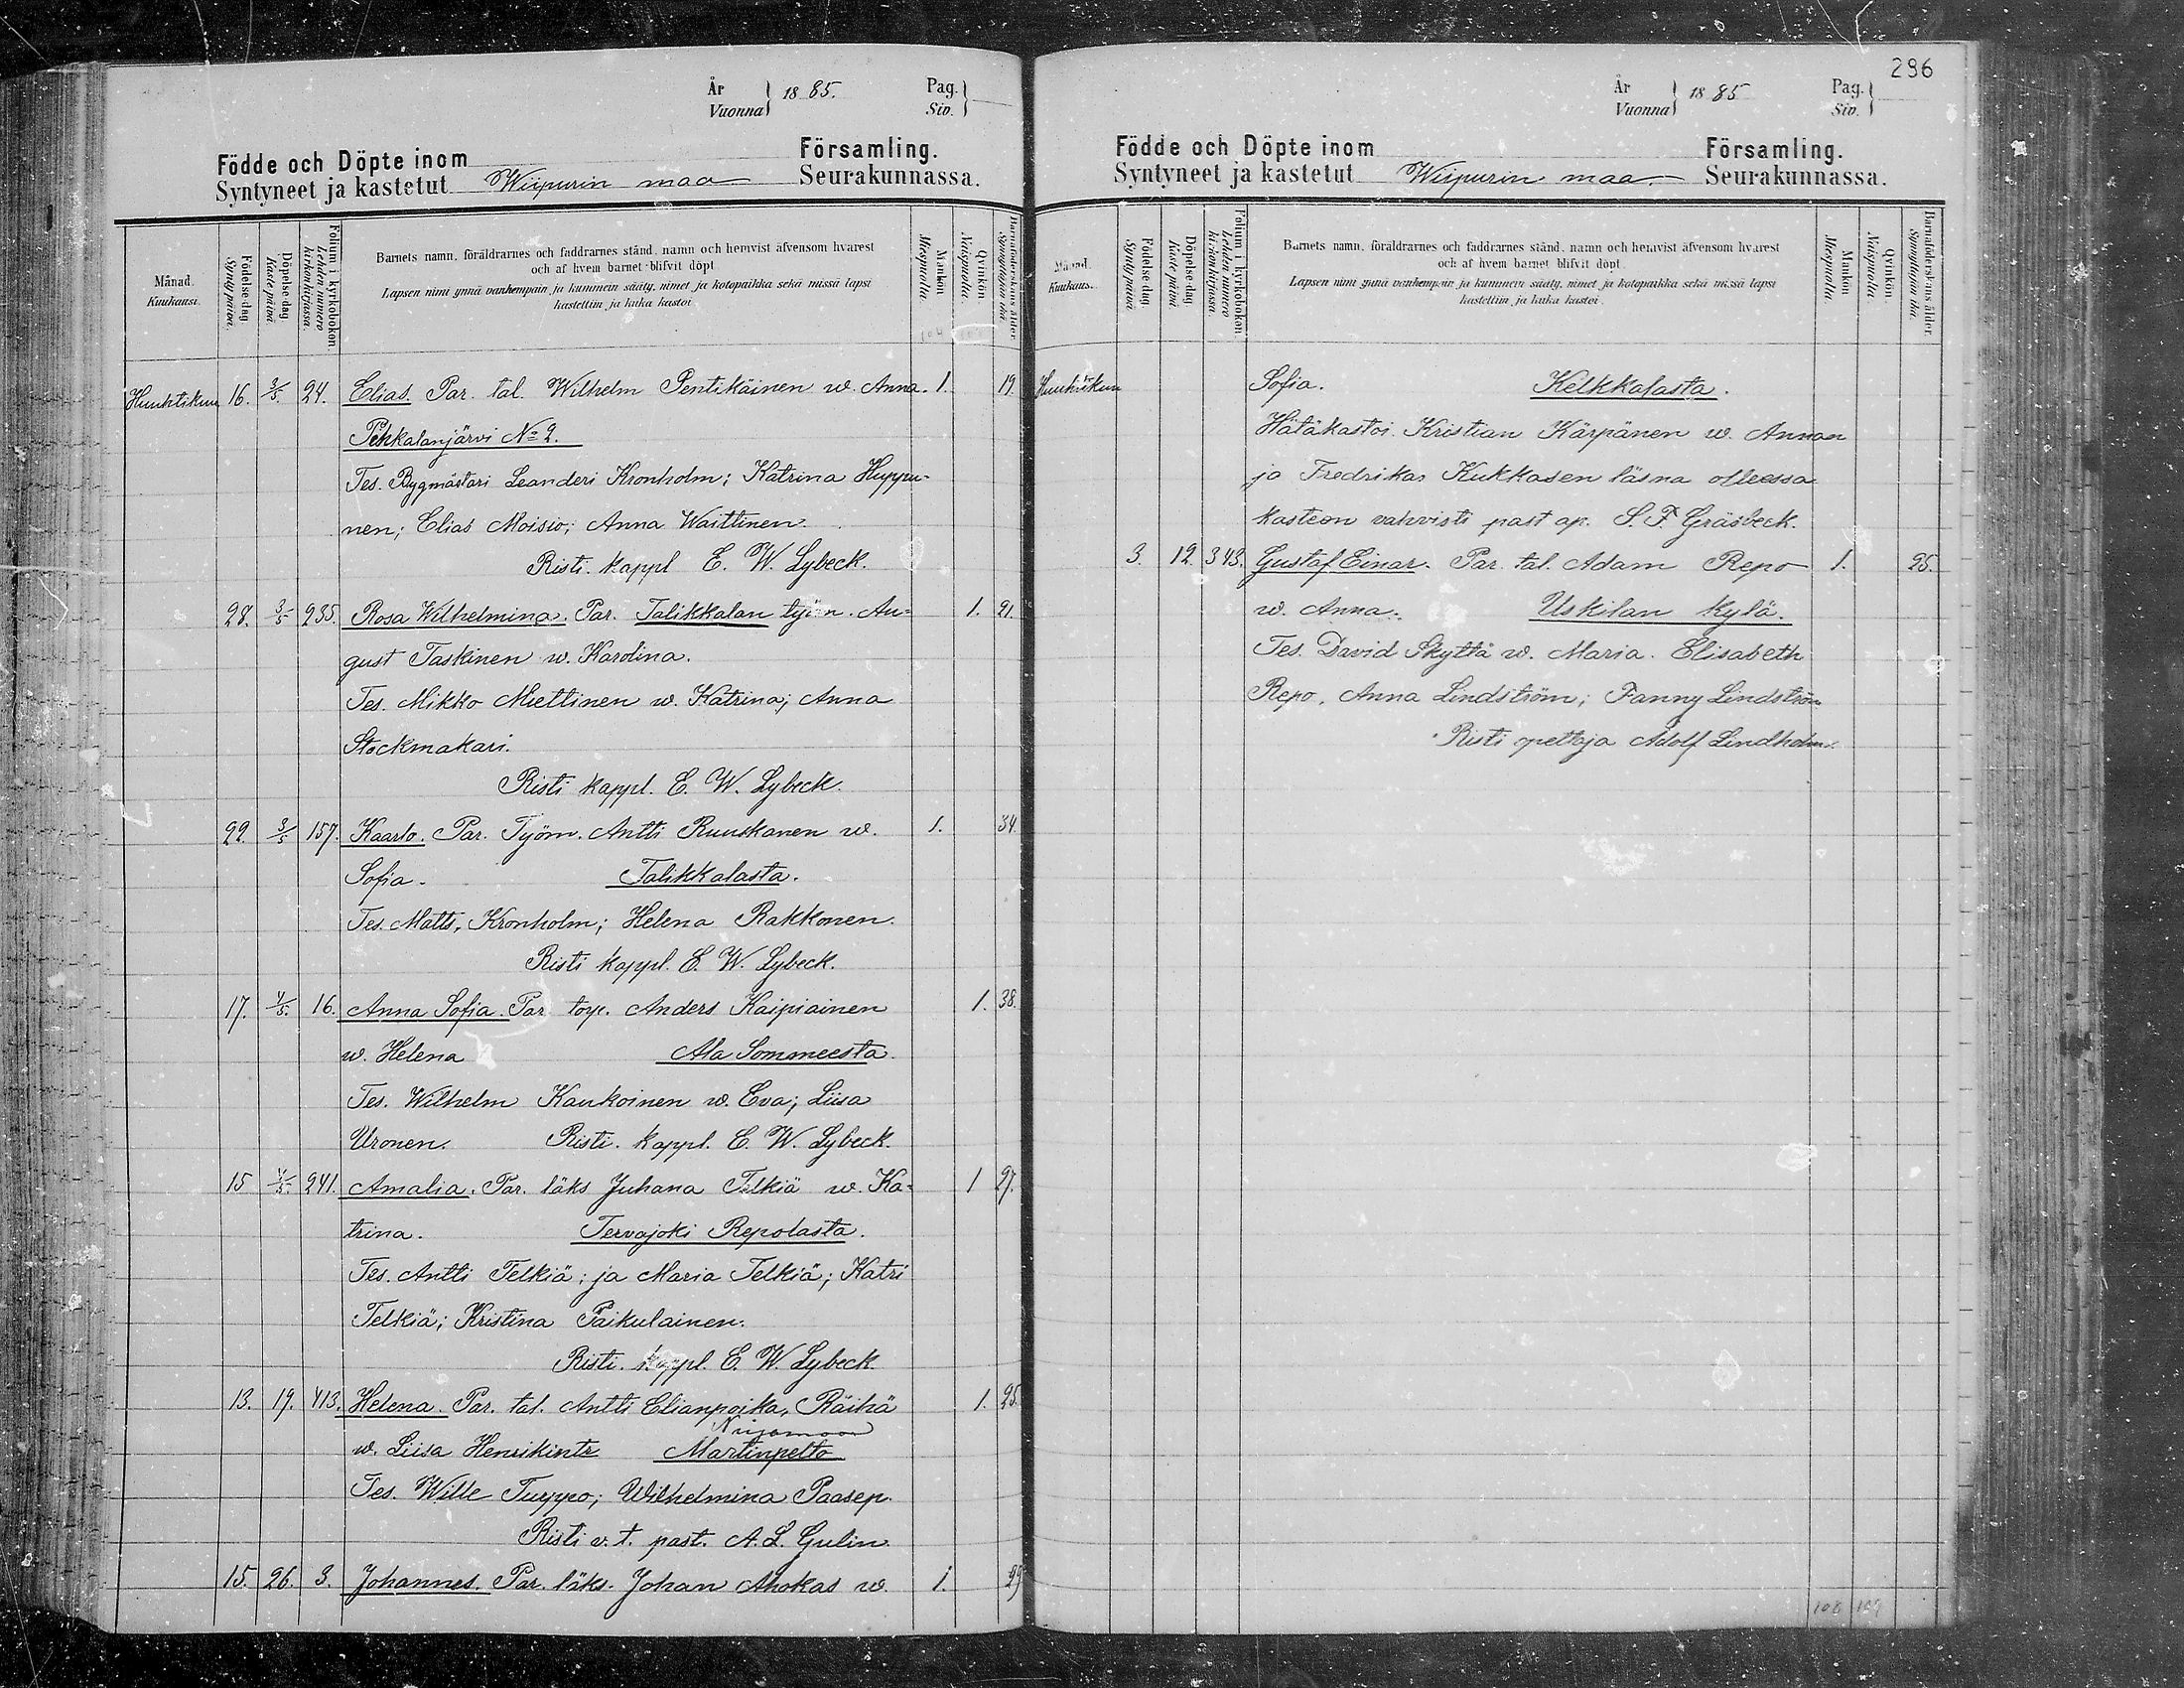 År
Vuonna } 18 85.
Pag.
Siv. }
Födde och Döpte inom
Församling.
Syntyneet ja kastetut Wiipurin maa Seurakunnassa.
Månad.
Kuukausi.
Födelse dag.
Synty päivä.
Döpelse dag.
Kaste päivä.
Folium i kyrkoboken.
Lehden numero kirkonkirjassa.
Barnets namn, föräldrarnes och faddrarnes stånd, namn och hemvist äfvensom hvarest
och af hvem barnet blifvit döpt.
Lapsen nimi ynnä vanhempain ja kummein sääty, nimet ja kotopaikka sekä missä lapsi
kastettiin ja kuka kastoi.
Mankön.
Miespuolia.
Qvinkön.
Naispuolia.
Barnaföderskans ålder.
Synnyttäjän ikä.
104
Huhtikuu 16. 3/5. 24. Elias. Par. tal. Wilhelm Pentikäinen w. Anna. 1. 19.
Pihkalanjärvi No 2.
Tes. Bygmästari Leanderi Kronholm; Katrina Huppu-
nen; Elias Moisio; Anna Waittinen.
Risti. kappl E. W. Lybeck.
28. 3/5 235. Rosa Wilhelmina. Par. Talikkalan työm. Au-
1. 21.
gust Taskinen w. Karolina.
Tes. Mikko Miettinen w. Katrina; Anna
Stockmakari.
Risti kappl. E. W. Lybeck.
22. 3/5 157. Kaarlo. Par. Työm. Antti Ruuskanen w. 1. 34.
Sofia. Talikkalasta.
Tes. Matts, Kronholm; Helena Rakkonen.
Risti kappl. E. W. Lybeck.
17. 4/5. 16. Anna Sofia. Par torp. Anders Kaipiainen 1. 38.
w. Helena Ala Sommeesta
Tes. Wilhelm Kaukoinen w. Eva; Liisa
Uronen. Risti. kappl. E. W. Lybeck.
15 4/5. 241. Amalia. Par. läks Juhana Telkiä w. Ka-
1 27.
trina. Tervajoki Repolasta.
Tes. Antti Telkiä; ja Maria Telkiä; Katri
Telkiä; Kristina Paikulainen.
Risti. kappl. E. W. Lybeck.
13. 19. 413. Helena. Par. tal. Antti Elianpoika, Räihä 1. 25.
w. Liisa Henrikintr Martinpelto
Tes. Wille Turppo; Wilhelmina Paasep.
Risti v. t. past. A. L. Gulin.
15. 26. 3. Johannes. Par. läks. Johan Ahokas w. 1. 29
296
År
Vuonna } 18 85
Pag.
Siv. }
Födde och Döpte inom
Församling.
Syntyneet ja kastetut Wiipurin maa. Seurakunnassa.
Månad.
Kuukausi.
Födelse dag.
Synty päivä.
Döpelse dag.
Kaste päivä.
Folium i kyrkoboken.
Lehden numero kirkonkirjassa.
Barnets namn, föräldrarnes och faddrarnes stånd, namn och hemvist äfvensom hvarest
och af hvem barnet blifvit döpt.
Lapsen nimi ynnä vanhempain ja kummein sääty, nimet ja kotopaikka sekä missä lapsi
kastettiin ja kuka kastoi.
Mankön.
Miespuolia.
Qvinkön.
Naispuolia.
Barnaföderskans ålder.
Synnyttäjän ikä.
Huhtikuu Sofia. Kelkkalasta.
Hätäkastoi Kristian Kärpänen w. Annan
ja Fredrika Kukkasen läsna olleessa
kasteen vahvisti past ap. S. F. Gräsbeck.
3. 12. 343. Gustaf Einar. Par. tal. Adam Repo 1. 25.
w. Anna. Uskilan kylä.
Tes. David Skyttä w. Maria. Elisabeth
Repo, Anna Lindström; Fanny Lindström
Risti opettaja Adolf Lindholm.
108 109